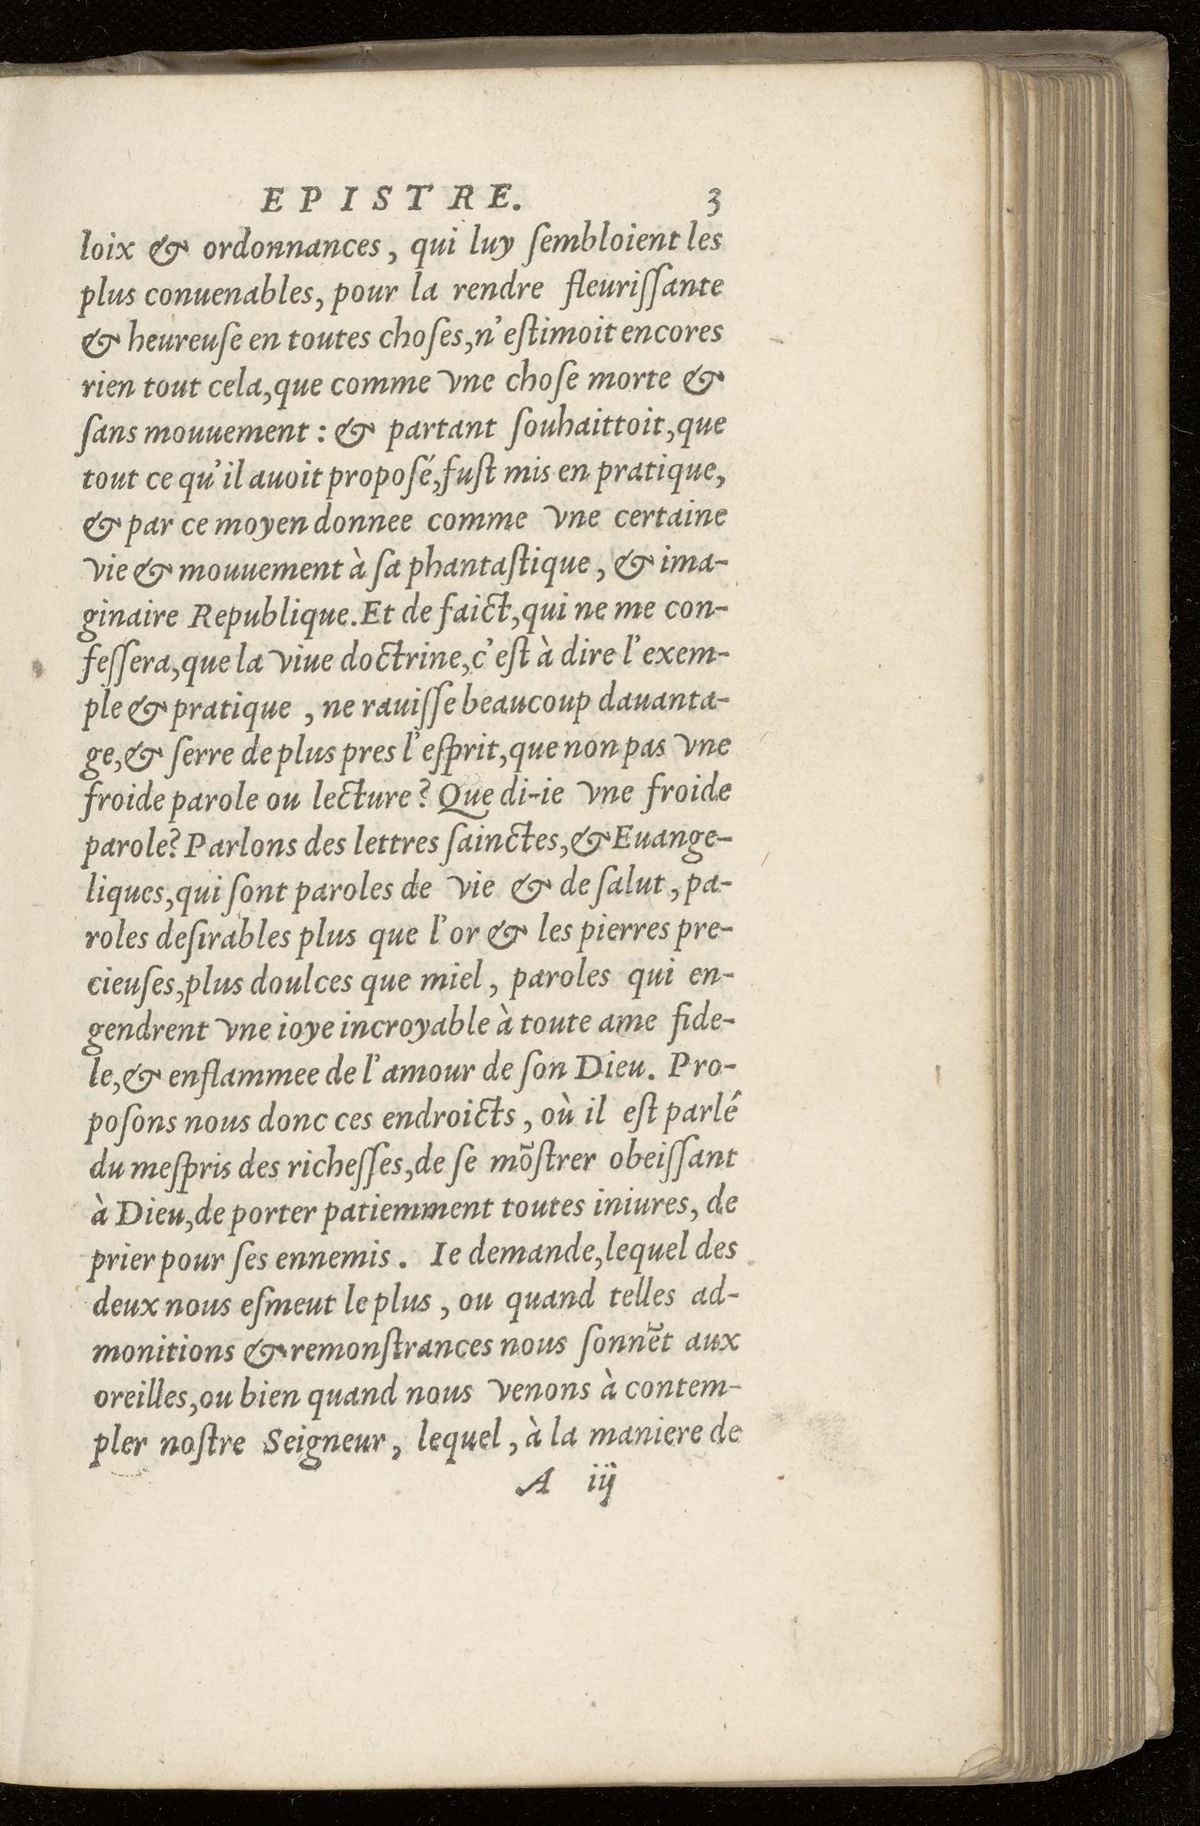 EPISTRE. 3
loix & ordonnances, qui luy ſembloient les
plus conuenables, pour la rendre fleuriſſante
& heureuſe en toutes choſes, n'eſtimoit encores
rien tout cela, que comme vne choſe morte &
ſans mouuement : & partant ſouhaittoit, que
tout ce qu'il auoit propoſé, fuſt mis en pratique,
& par ce moyen donnee comme vne certaine
vie & mouuement à ſa phantaſtique, & ima-
ginaire Republique. Et de faict, qui ne me con-
feſſera, que la viue doctrine, c'eſt à dire l'exem-
ple & pratique, ne rauiſſe beaucoup dauanta-
ge, & ſerre de plus pres l'eſprit, que non pas vne
froide parole ou lecture? Que di-ie vne froide
parole? Parlons des lettres ſainctes, & Euange-
liques, qui ſont paroles de vie & de ſalut, pa-
roles deſirables plus que l'or & les pierres pre-
cieuſes, plus doulces que miel, paroles qui en-
gendrent vne ioye incroyable à toute ame fide-
le, & enflammee de l'amour de ſon Dieu. Pro-
poſons nous donc ces endroicts, où il eſt parlé
du meſpris des richeſſes, de ſe mõſtrer obeiſſant
à Dieu, de porter patiemment toutes iniures, de
prier pour ſes ennemis. Ie demande, lequel des
deux nous eſmeut le plus, ou quand telles ad-
monitions & remonſtrances nous ſonnẽt aux
oreilles, ou bien quand nous venons à contem-
pler noſtre Seigneur, lequel, à la maniere de
A iij